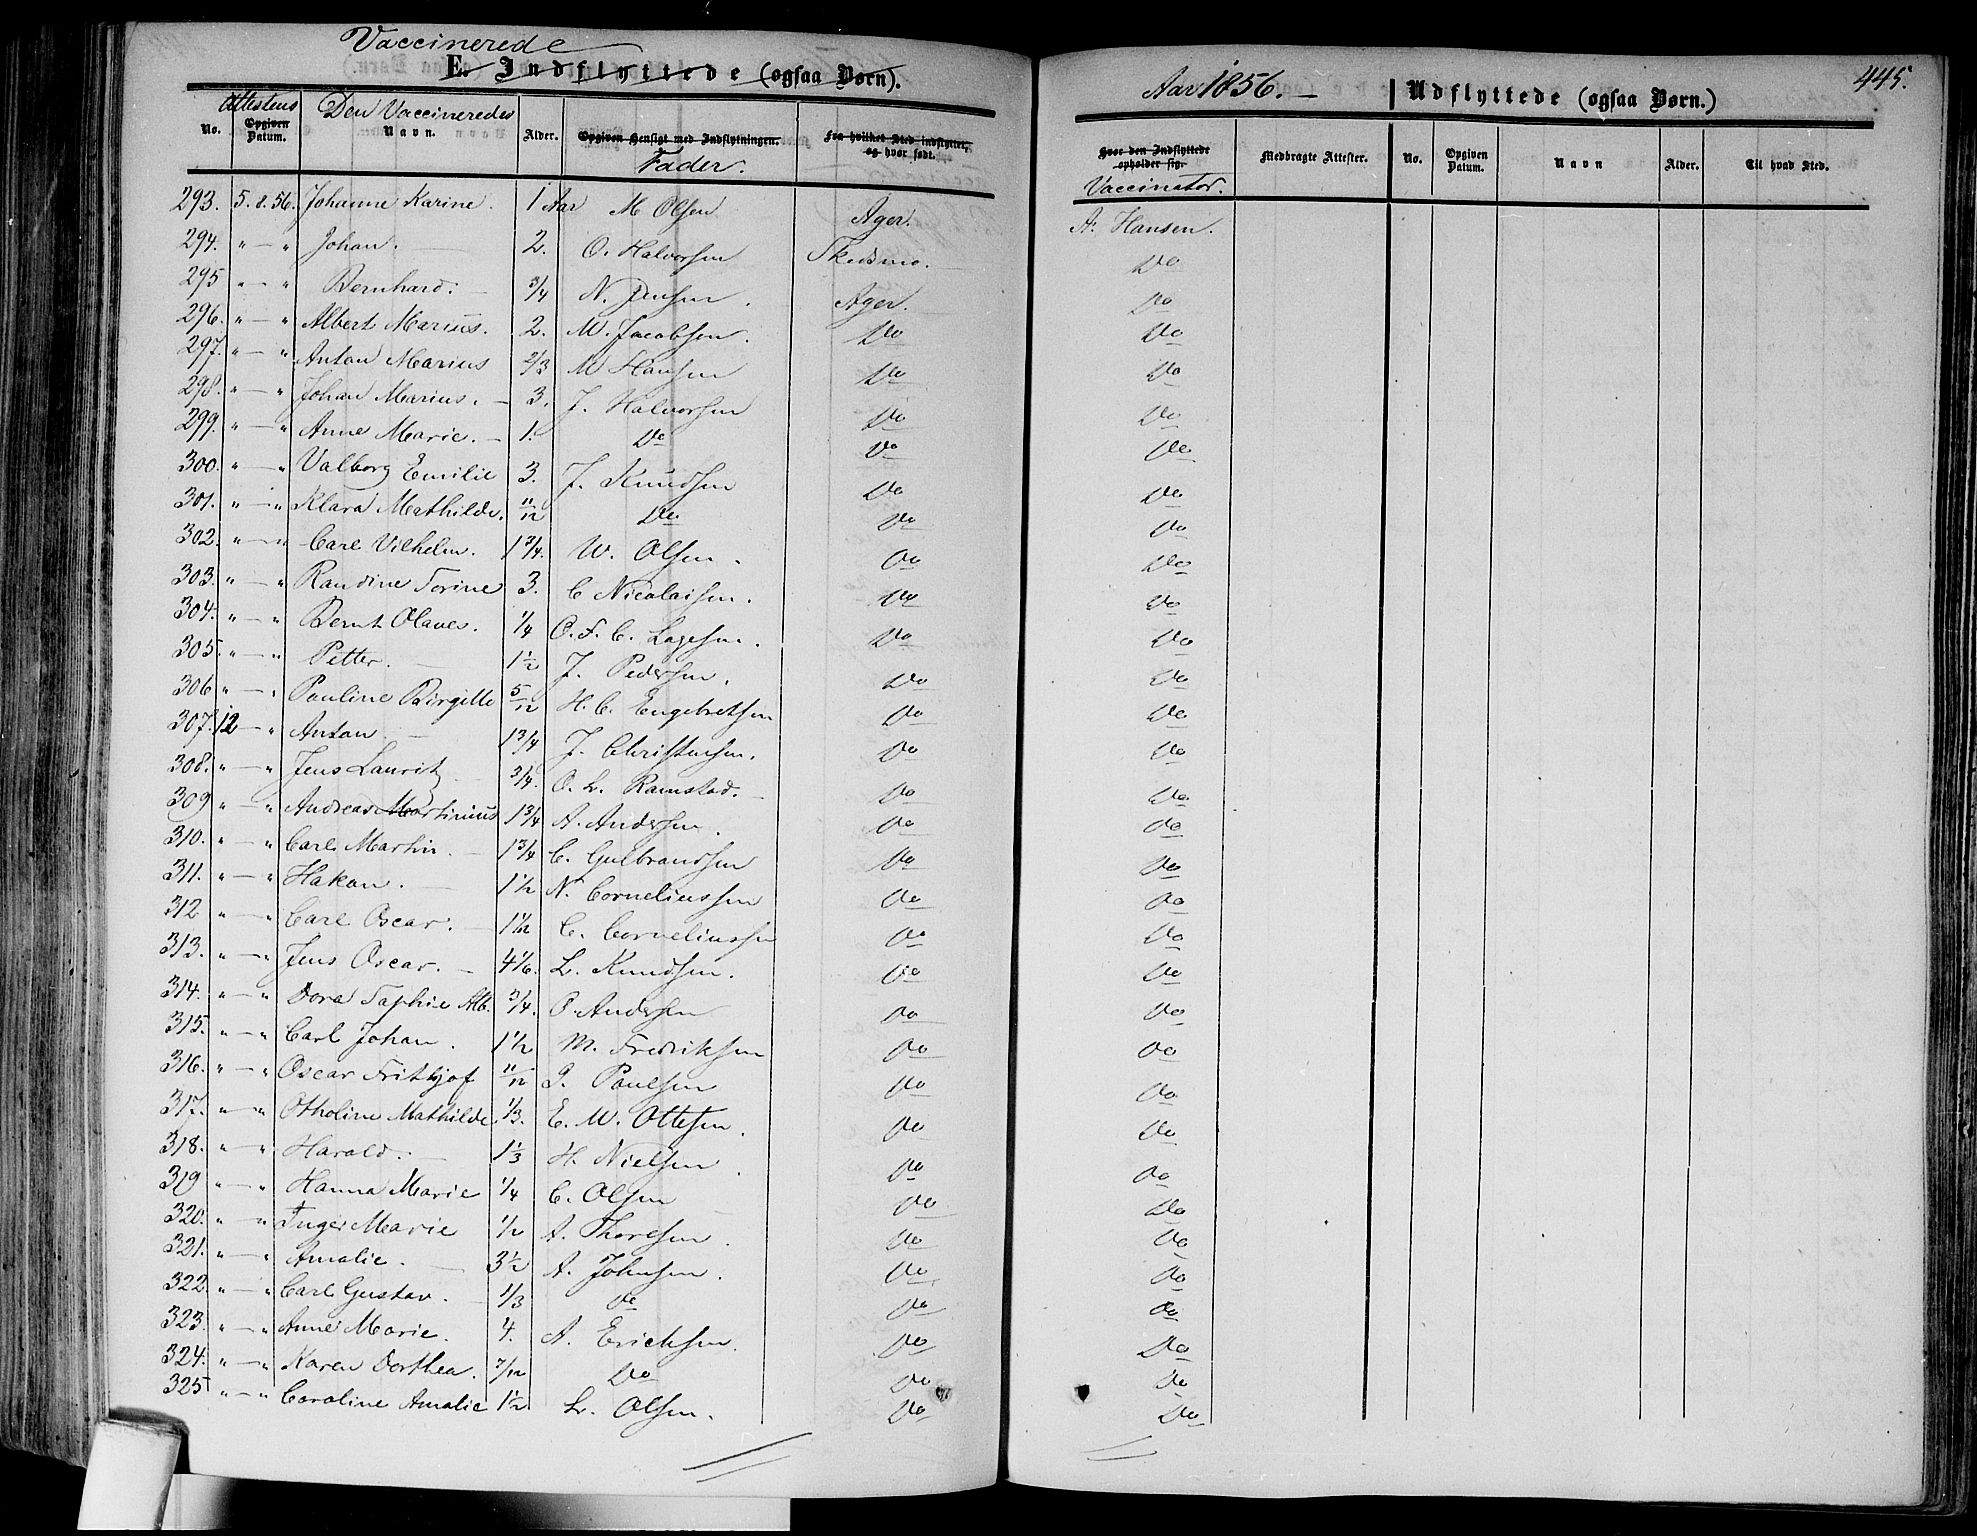 Vaccinerede
E. Indflyttede (ogsaa Børn).
Aar 1856. | Udflyttede (ogsaa Børn.) 445.
No. | Attestens Opgiven Datum. | Den Vaccineredes Navn. | Alder. | Opgiven Hensigt med Indflytningen. Fader. | Fra hvilket Sted indflyttet, og hvor født. | Hvor den Indflyttede opholder sig. Vaccinator. | Medbragte Attester. | No. | Opgiven Datum. | Navn | Alder. | Til hvad Sted.
293. 5. 8. 56. Johanne Karine. 1 Aar M Olsen Ager. A. Hansen.
294. " — " Johan. 2. O. Halvorsen Skedsmo. Do
295 " — " Bernhard. 3/4 N. Jensen. Ager. Do
296. " — " Albert Marius. 2. M. Jacobsen. Do Do
297. " — " Anton Marius 2/3 M Hansen Do Do
298. " — " Johan Marius. 3. J. Halvorsen Do Do
299. " — " Anne Marie. 1. Do Do Do
300. " — " Valborg Emilie 3. J. Knudsen Do Do
301. " — " Klara Mathilde. 11/12 Do Do Do
302. " — " Carl Vilhelm. 1 3/4. W. Olsen. Do Do
303. " — " Randine Torine 3. C Nicolaisen. Do Do
304. " — " Bernt Olaves. 1/4 O. F. C. Lagesen. Do Do
305. " — " Petter. 1 1/2 J. Pedersen. Do Do
306 " — " Pauline Birgitte 5/12 H. C. Engebretsen Do Do
307. 12 — " Anton. 1 3/4 J. Christensen. Do Do
308. " — " Jens Lauritz 3/4. O. L. Ramstad. Do Do
309 " — " Andreas Martinius 1 3/4 A. Andersen. Do Do
310. " — " Carl Martin. 1 3/4 C. Gulbrandsen Do Do
311. " — " Hakon. 1 1/2 N. Corneliussen Do Do
312 " — " Carl Oscar. 1 1/12 C. Corneliussen Do Do
313. " — " Jens Oscar. 4 1/6. L. Knudsen. Do Do
314. " — " Dora Saphie Alb. 3/4. O. Andersen Do Do
315. " — " Carl Johan. 1 1/2 M. Fredriksen Do Do
316. " — " Oscar Frithjof 11/12 P. Paulsen Do Do
317. " — " Otholine Mathilde. 1/3. E. M. Ottesen. Do Do
318. " — " Harald. 1 1/3 H. Nielsen. Do Do
319 " — " Hanna Marie 1/4 C. Olsen Do Do
320. " — " Inger Marie 1/2 A. Thoresen. Do Do
321. " — " Amalie. 3 1/2 A. Johnsen. Do Do
322. " — " Carl Gustav. 1/3 Do Do Do
323. " — " Anne Marie. 4. A. Ericksen. Do Do
324. " — " Karen Dorthea. 7/12 Do Do Do
325 " — " Caroline Amalie 1 1/2 L. Olsen. Do Do